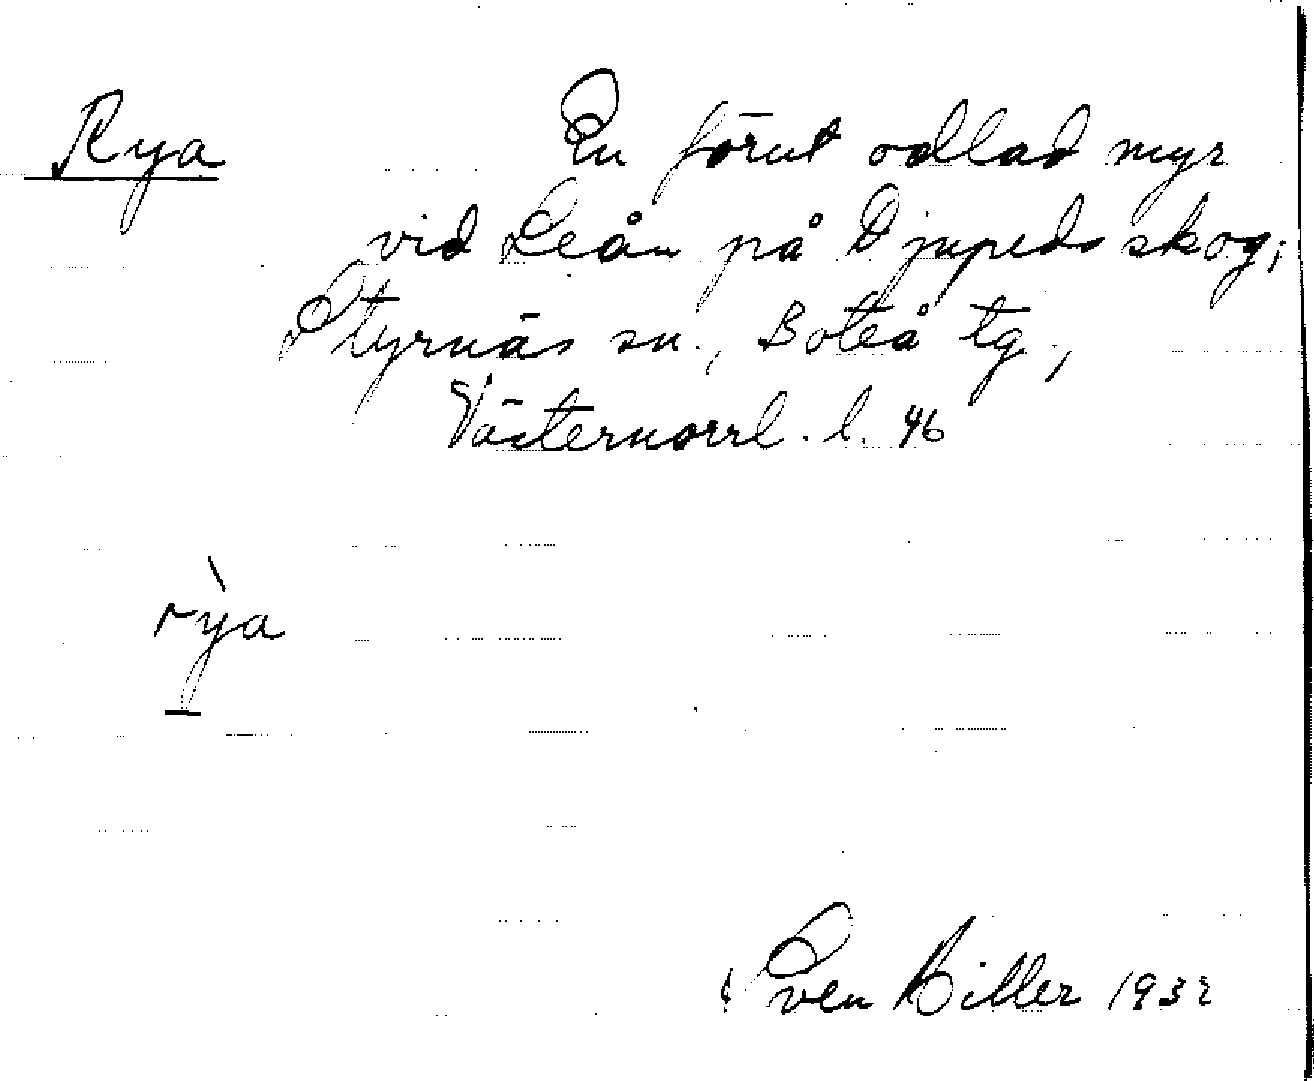 Rya
En förut odlad myr
vid Leån på Djupeds skog;
Styrnäs sn., Boteå tg.,
Västernorrl. l. 46
rỳa
Sven Hiller 1932